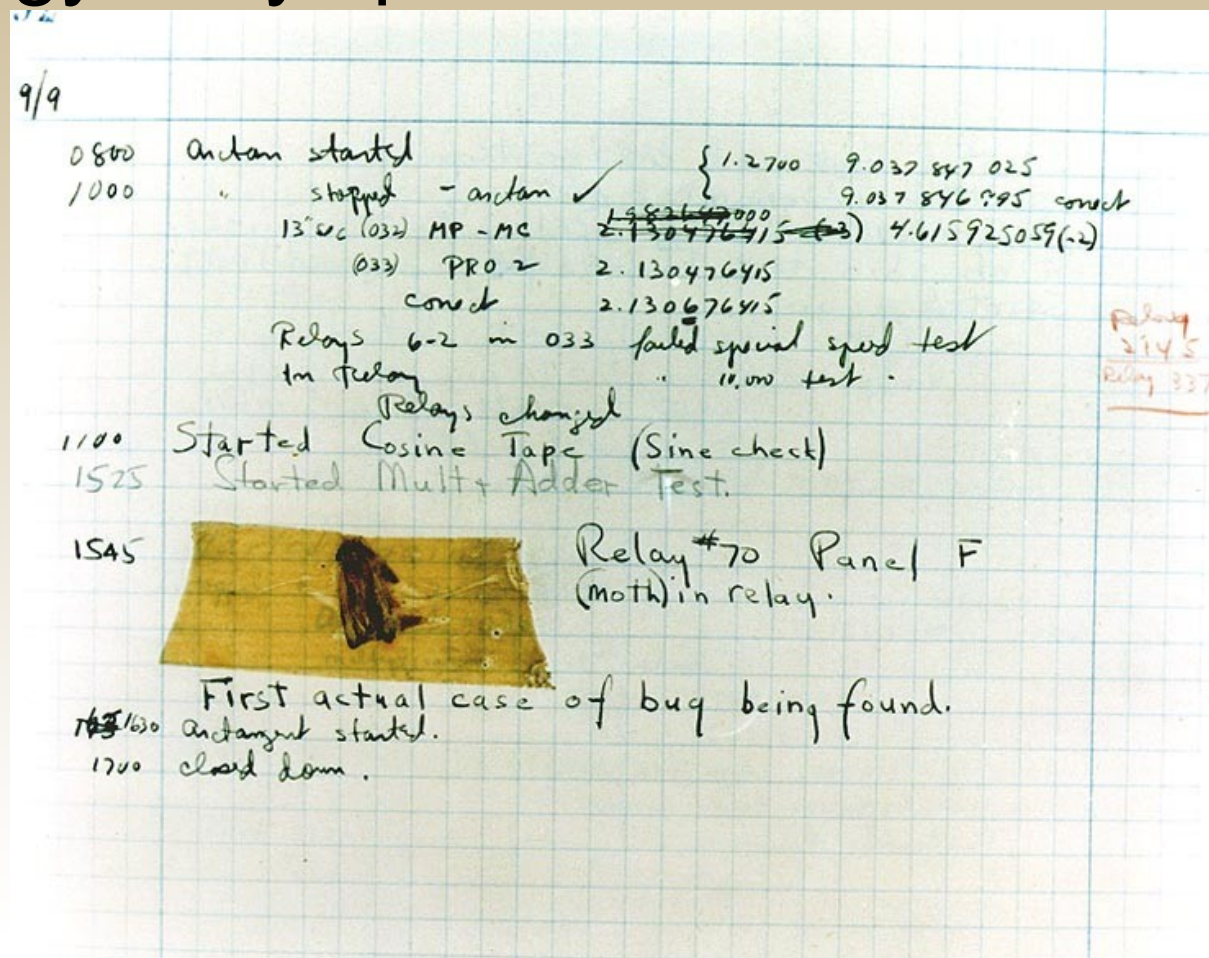 9/9
0800 arctan started { 1.2700 9.037 847 025
1000 " stopped - arctan ✓ 9.037 846 795 correct
13"uc (032) MP - MC 1.982647000 2.130476415 (-3) 4.615925059(-2)
(033) PRO 2 2.130476415
correct 2.130676415
Relays 6-2 in 033 failed special speed test
In Relay " 10,000 test.
Relay
2145
Relay 337
Relays changed
1100 Started Cosine Tape (Sine check)
1525 Started Mult + Adder Test.
1545 Relay #70 Panel F
(moth) in relay.
First actual case of bug being found.
1630 arctangent started.
1700 closed down.